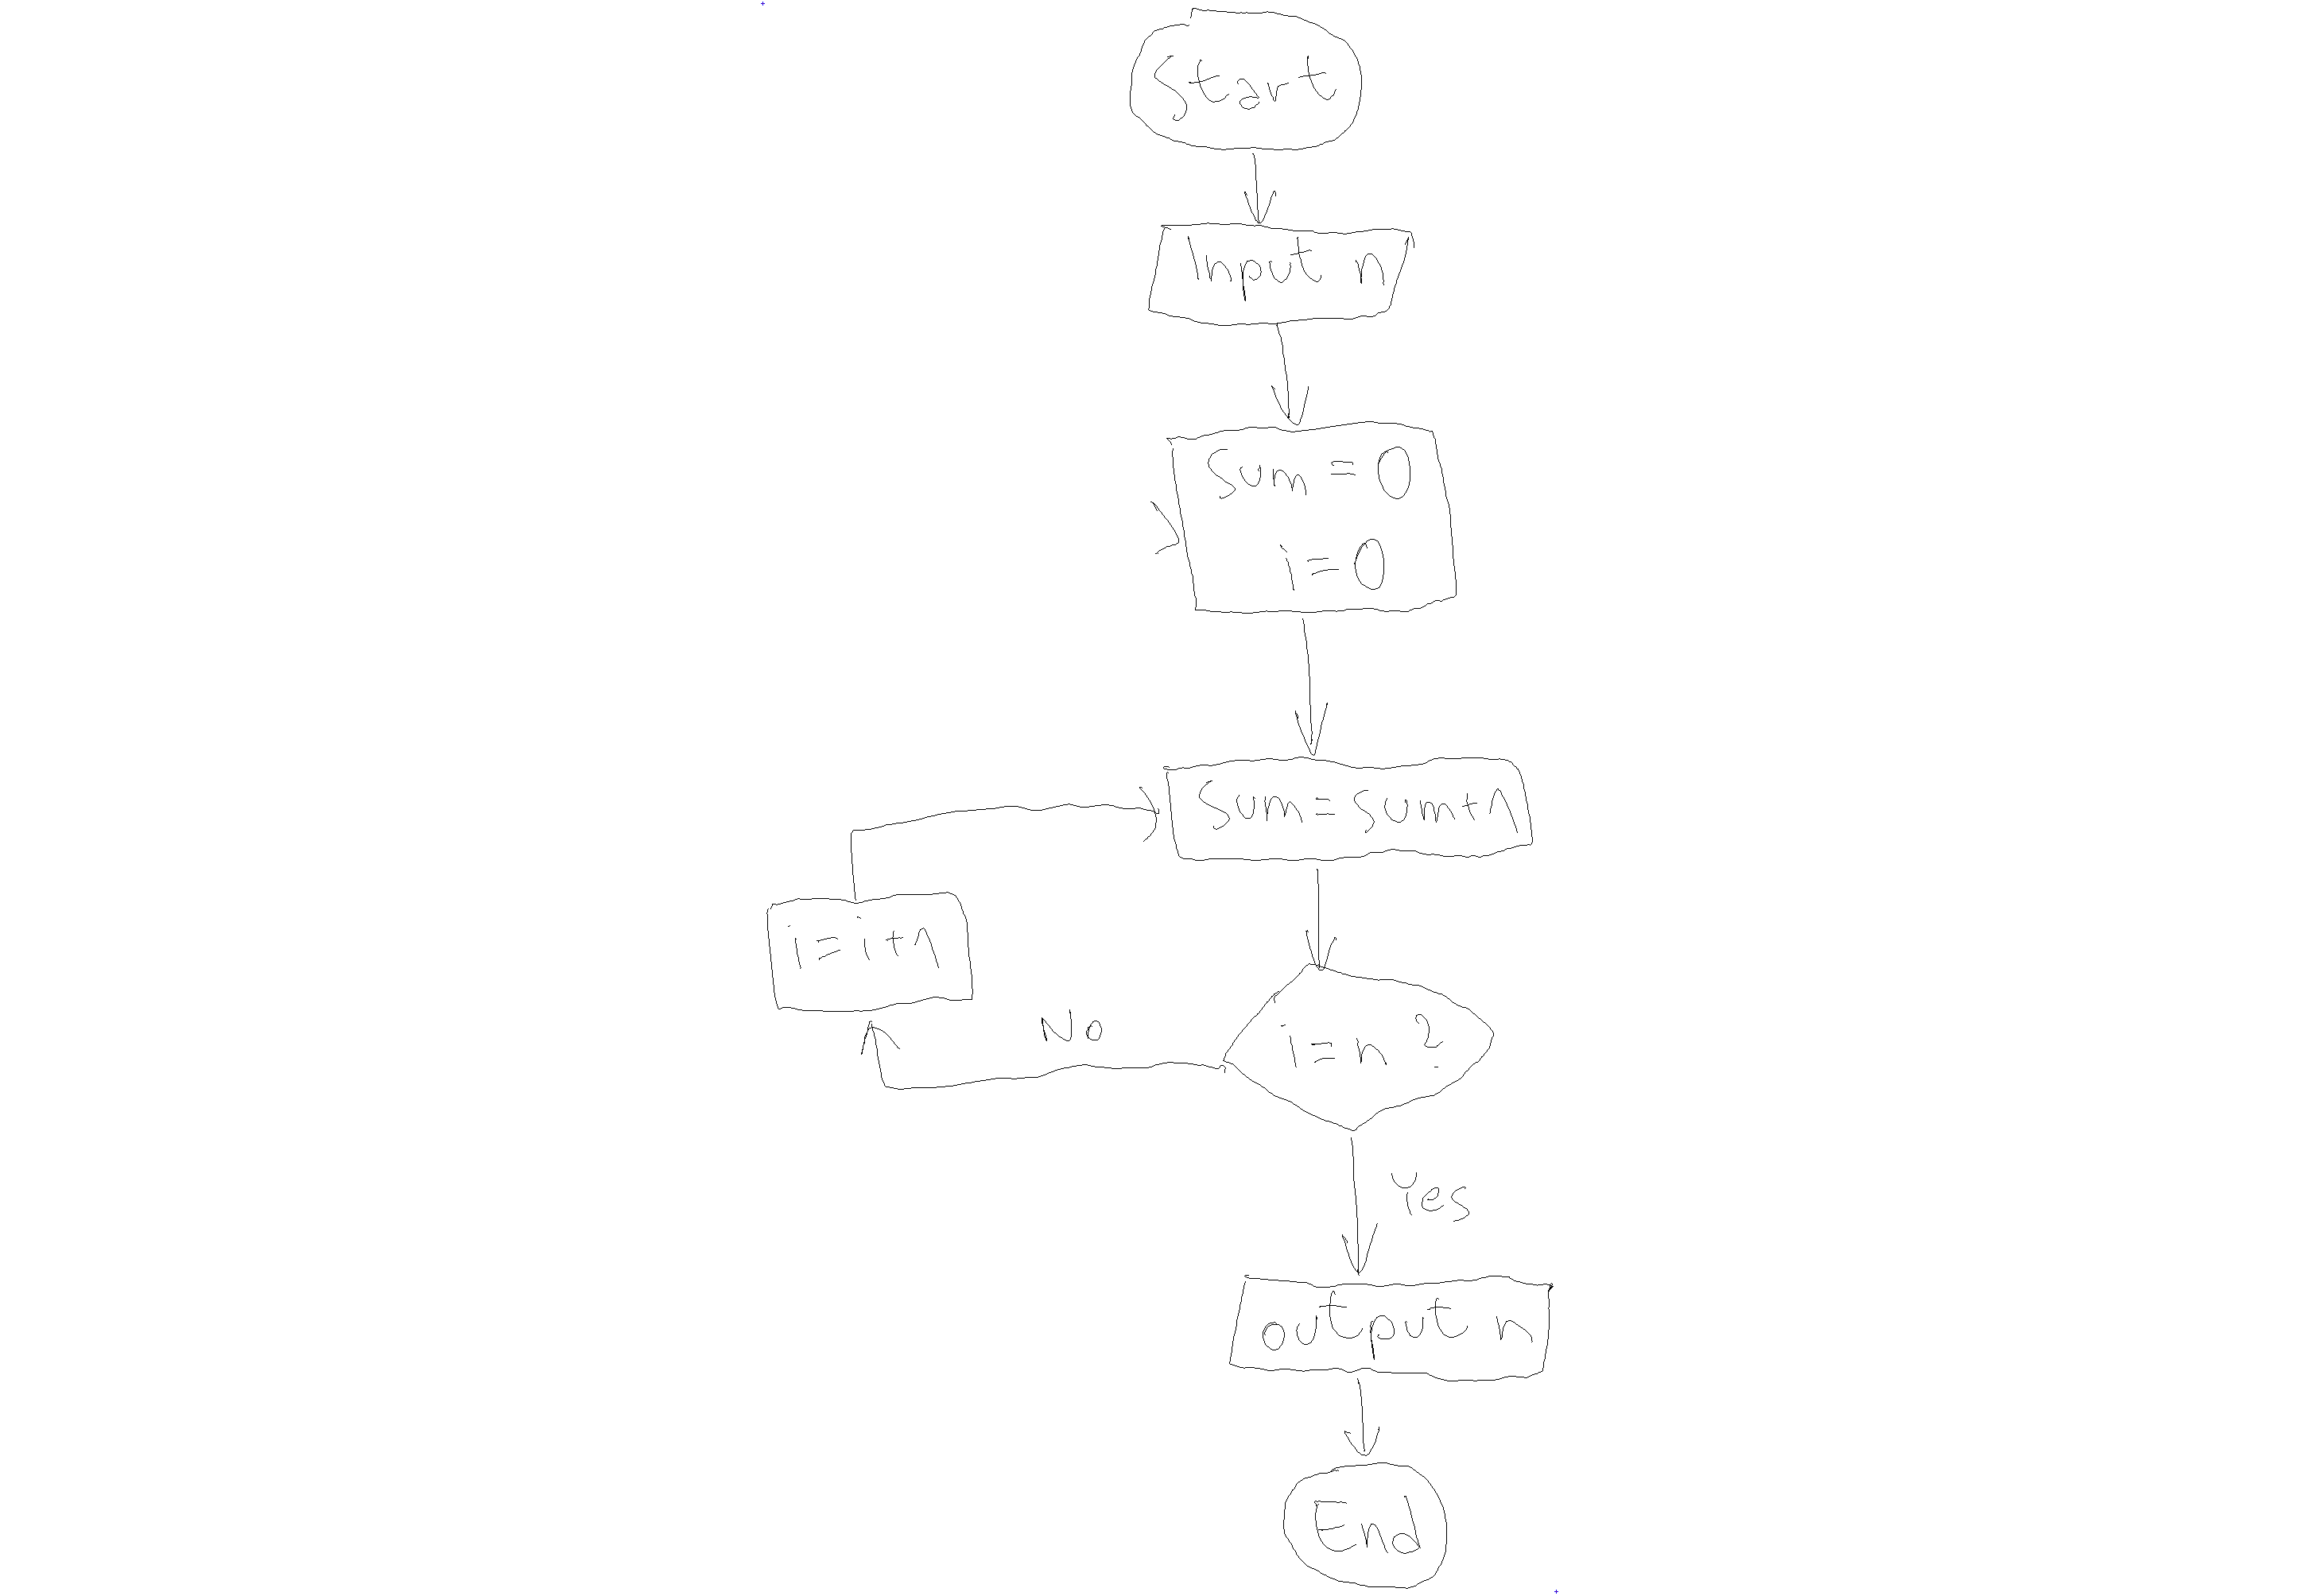 Start
Input n
Sum=0
i=0
Sum=sum+1
i=i+1
No
i=n?
Yes
output n
End